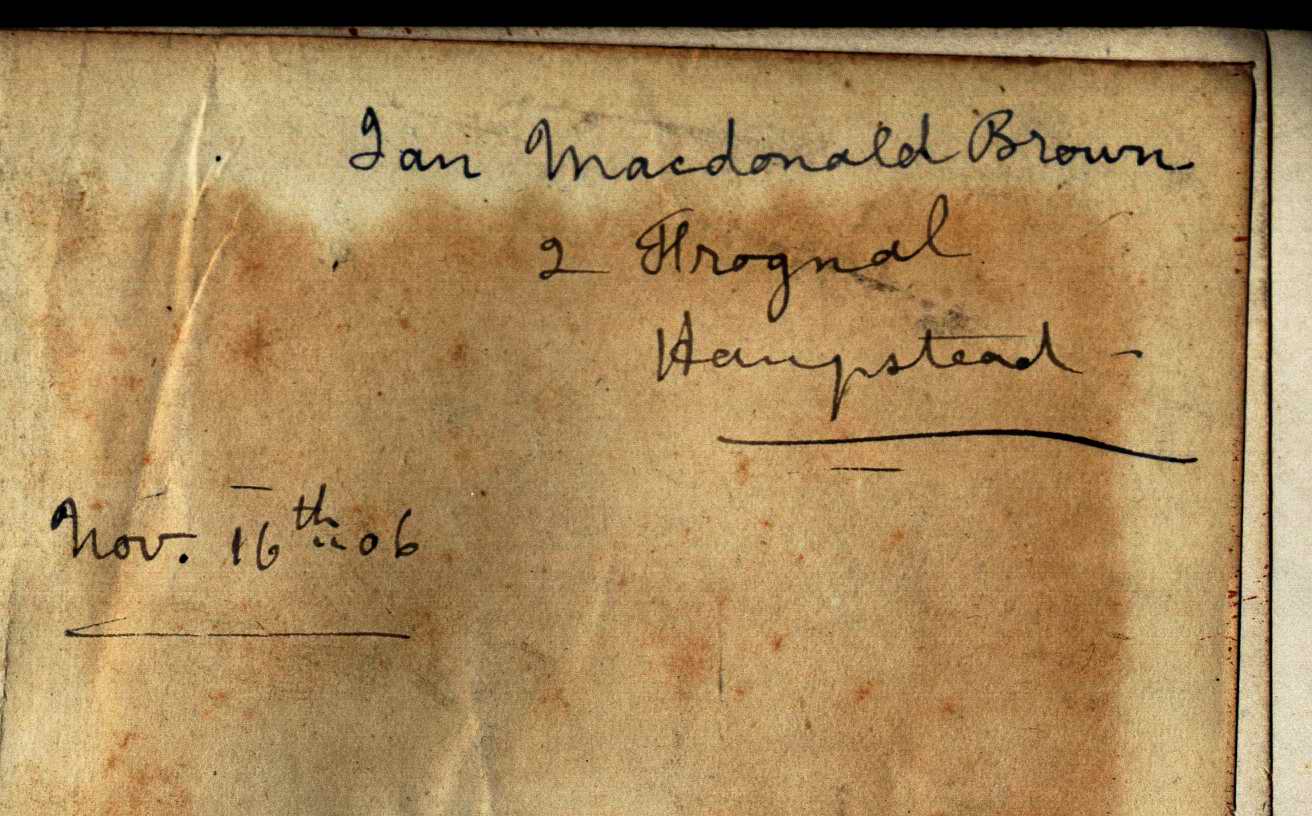 Ian Macdonald Brown
2 Frognal
Hampstead -
Nov. 16th 06